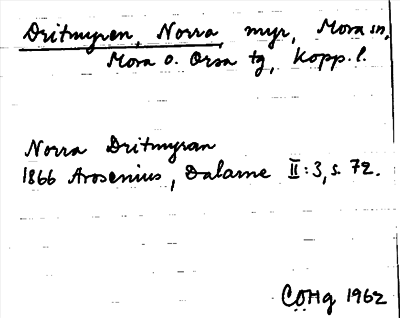 Dritmyren, Norra, myr, Mora sn,
Mora o. Orsa tg, Kopp. l.
Norra Dritmyran
1866 Arosenius, Dalarne II:3, s. 72.
COHg 1962